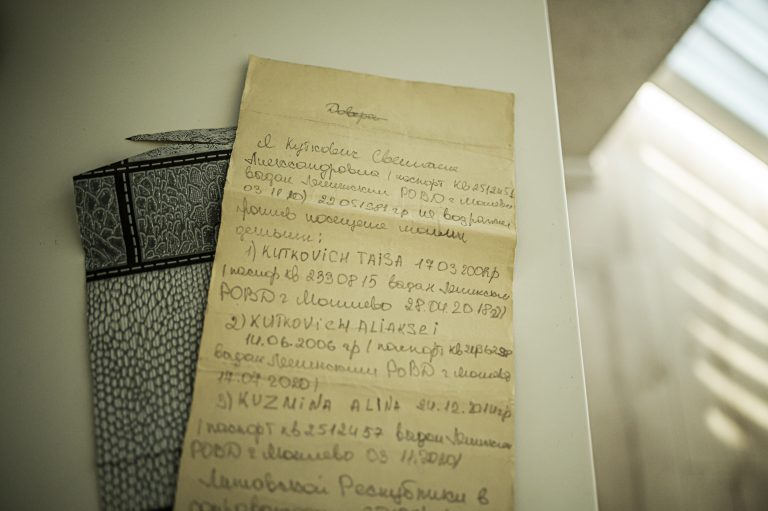 Довере
Я Куткович Светлана
Александровна (паспорт КВ 2512456
выдан Ленинским РОВD г Могилево
03.11.20) 22.05.1981 гр не возражаю
против посещение моими
детьми:
1) KUTKOVICH TAISA 17.03.2008гр
(паспор КВ 2330815 выдан Ленинским
РОВD г Могилево 28.04.2018)
2) KUTKOVICH ALIAKSEI
14.06.2006 гр (паспорт КВ
выдан Ленинским РОВD г Могилево
17.07.2020)
3) KUZMINA ALINA 24.12.2014гр
(паспорт КВ 2512457 выдан Ленинским
РОВD г Могилево 03.11.2020)
Литовской Республики в